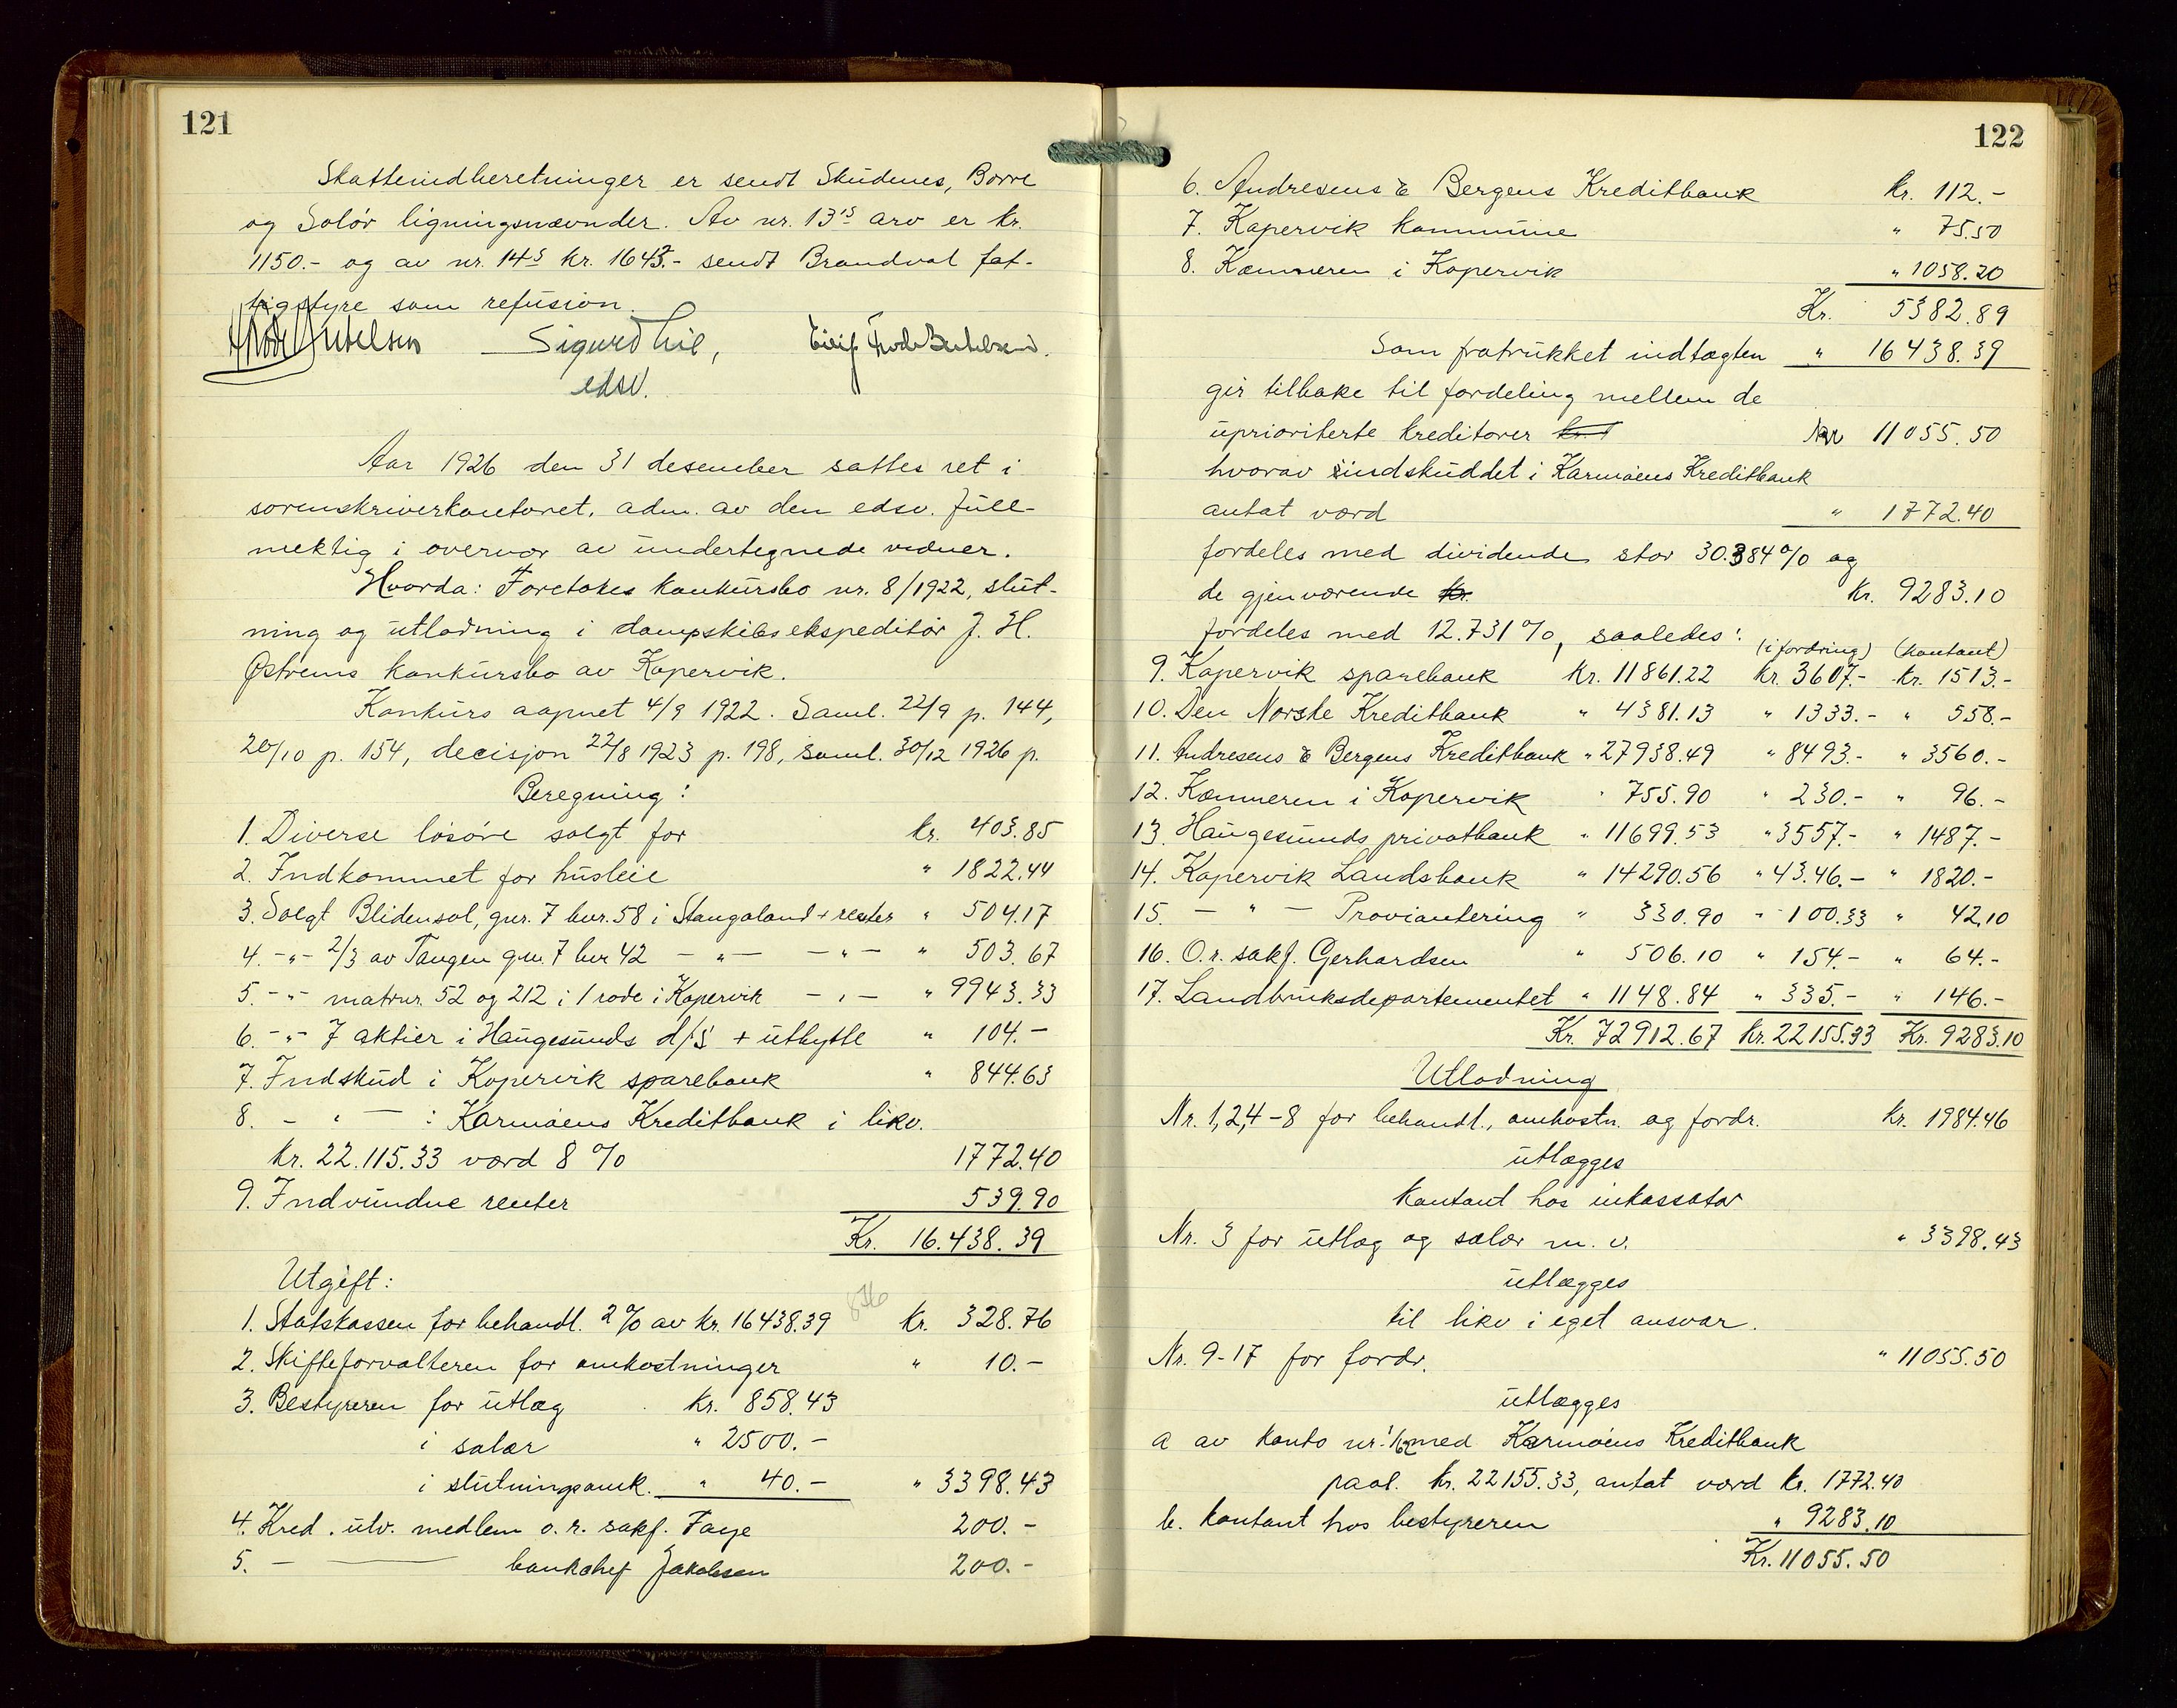 121
Skatteindberetninger er sendt Skudenes, Borre
og Solør ligningsnævnder. Av nr. 13's arv er kr.
1150.- og av nr. 14s kr. 1643.- sendt Brandval fat-
tigstyre som refusion.
Sigurd Lie,
edsv.
Aar 1926 den 31 desember sattes ret i
sorenskriverkontoret, adm. av den edsv. full-
mektig i overvær av undertegnede vidner.
Hvorda: Foretokes konkursbo nr. 8/1922, slut-
ning og utlodning i dampskibsekspeditør J. H.
Østrems konkursbo av Kopervik.
Konkurs aapnet 4/9 1922. Saml. 22/9 p. 144,
20/10 p. 154, decisjon 22/8 1923 p. 198, saml. 30/12 1926 p.
Beregning:
1. Diverse løsøre solgt for kr. 403.85
2. Indkommet for husleie " 1822.44
3. Solgt Blidensol, gnr. 7 bnr. 58 i Stangaland + renter " 504.17
4. -"- 2/3 av Tangen gnr. 7 bnr 42 - " - - " - " 503.67
5. -"- matrnr. 52 og 212 i 1 rode i Kopervik - " - " 9943.33
6. -"- 7 aktier i Haugesunds d/s + utbytte " 104.-
7. Indskud i Kopervik sparebank " 844.63
8. - " - : Karmøens Kreditbank i likv.
kr. 22.115.33 værd 8 % 1772.40
9. Indvundne renter 539.90
Kr. 16.438.39
Utgift:
1. Statskassen for behandl. 2 % av kr. 16438.39 kr. 328.76
2. Skifteforvalteren for omkostninger " 10.-
3. Bestyreren for utlæg kr. 858.43
i salær " 2500.-
i slutningsomk. " 40.- " 3398.43
4. Kred. utv. medlem o.r. sakf. Faye 200.-
5. - bankchef Jakobsen 200.-
122
6. Andresens & Bergens Kreditbank kr. 112.-
7. Kopervik kommune " 75.50
8. Kæmneren i Kopervik " 1058.20
Kr. 5382.89
Som fratrukket indtægten " 16438.39
gir tilbake til fordeling mellem de
uprioriterte kreditorer kr. 11055.50
hvorav indskuddet i Karmøens Kreditbank
antat værd " 1772.40
fordeles med dividende stor 30.384% og
de gjenværende kr. Kr. 9283.10
fordeles med 12.731 %, saaledes: (i fordring) (kontant)
9. Kopervik sparebank kr. 11861.22 kr. 3607.- kr. 1513.-
10. Den Norske Kreditbank " 4381.13 " 1333.- " 558.-
11. Andresens & Bergens Kreditbank " 27938.49 " 8493.- " 3560.-
12. Kæmneren i Kopervik " 755.90 " 230.- " 96.-
13. Haugesunds privatbank " 11699.53 " 3557.- " 1487.-
14. Kopervik Landsbank " 14290.56 " 43.46.- " 1820.-
15. - " - Proviantering " 330.90 " 100.33 " 42.10
16. O.r. sakf. Gerhardsen " 506.10 " 154.- " 64.-
17. Landbruksdepartementet " 1148.84 " 335.- " 146.-
Kr. 72912.67 kr. 22155.33 Kr. 9283.10
Utlodning
Nr. 1,2,4-8 for behandl., omkostn. og fordr. kr. 1984.46
utlægges
kontant hos inkassator
Nr. 3 for utlæg og salær m. v. " 3398.43
utlægges
til likv i eget ansvar.
Nr. 9-17 for fordr. " 11055.50
utlægges
a av konto nr. med Karmøens Kreditbank
paal. kr. 22155.33, antat værd kr. 1772.40
b. kontant hos bestyreren " 9283.10
Kr. 11055.50